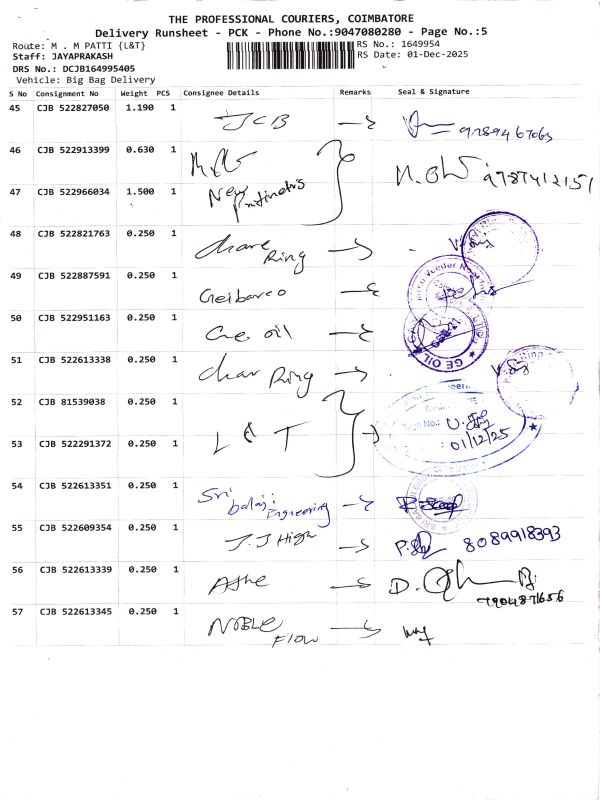 THE PROFESSIONAL COURIERS, COIMBATORE
Delivery Runsheet - PCK - Phone No.:9047080280 - Page No.:5
Route: M . M PATTI {L&T}
RS No.: 1649954
Staff: JAYAPRAKASH
RS Date: 01-Dec-2025
DRS No.: DCJB164995405
Vehicle: Big Bag Delivery
S No Consignment No Weight PCS Consignee Details Remarks Seal & Signature
45 CJB 522827050 1.190 1 JCB
46 CJB 522913399 0.630 1
9787412151
47 CJB 522966034 1.500 1 New
48 CJB 522821763 0.250 1 Ring
49 CJB 522887591 0.250 1
50 CJB 522951163 0.250 1 Ge. oil
GE OIL
51 CJB 522613338 0.250 1 Char Ring
52 CJB 81539038 0.250 1
53 CJB 522291372 0.250 1 L & T
01/12/25
54 CJB 522613351 0.250 1 Sri
balaji Engineering
55 CJB 522609354 0.250 1 J.J High 8089918393
56 CJB 522613339 0.250 1 D.
7904871656
57 CJB 522613345 0.250 1 NOBLE
FLOW